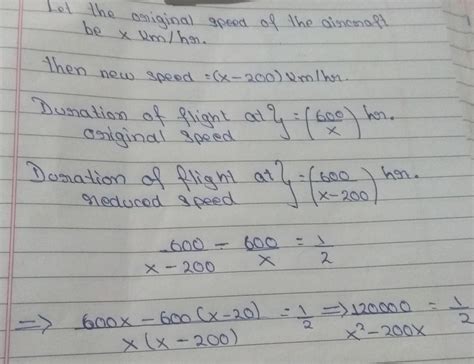 Let the original speed of the aircraft
be x km/hr.
then new speed = (x-200) km/hr.
Duration of flight at } = (600/x) hr.
original speed
Duration of flight at } = (600/x-200) hr.
reduced speed
600/x-200 - 600/x = 1/2
⇒ 600x-600(x-20)/x(x-200) = 1/2 ⇒ 120000/x²-200x = 1/2